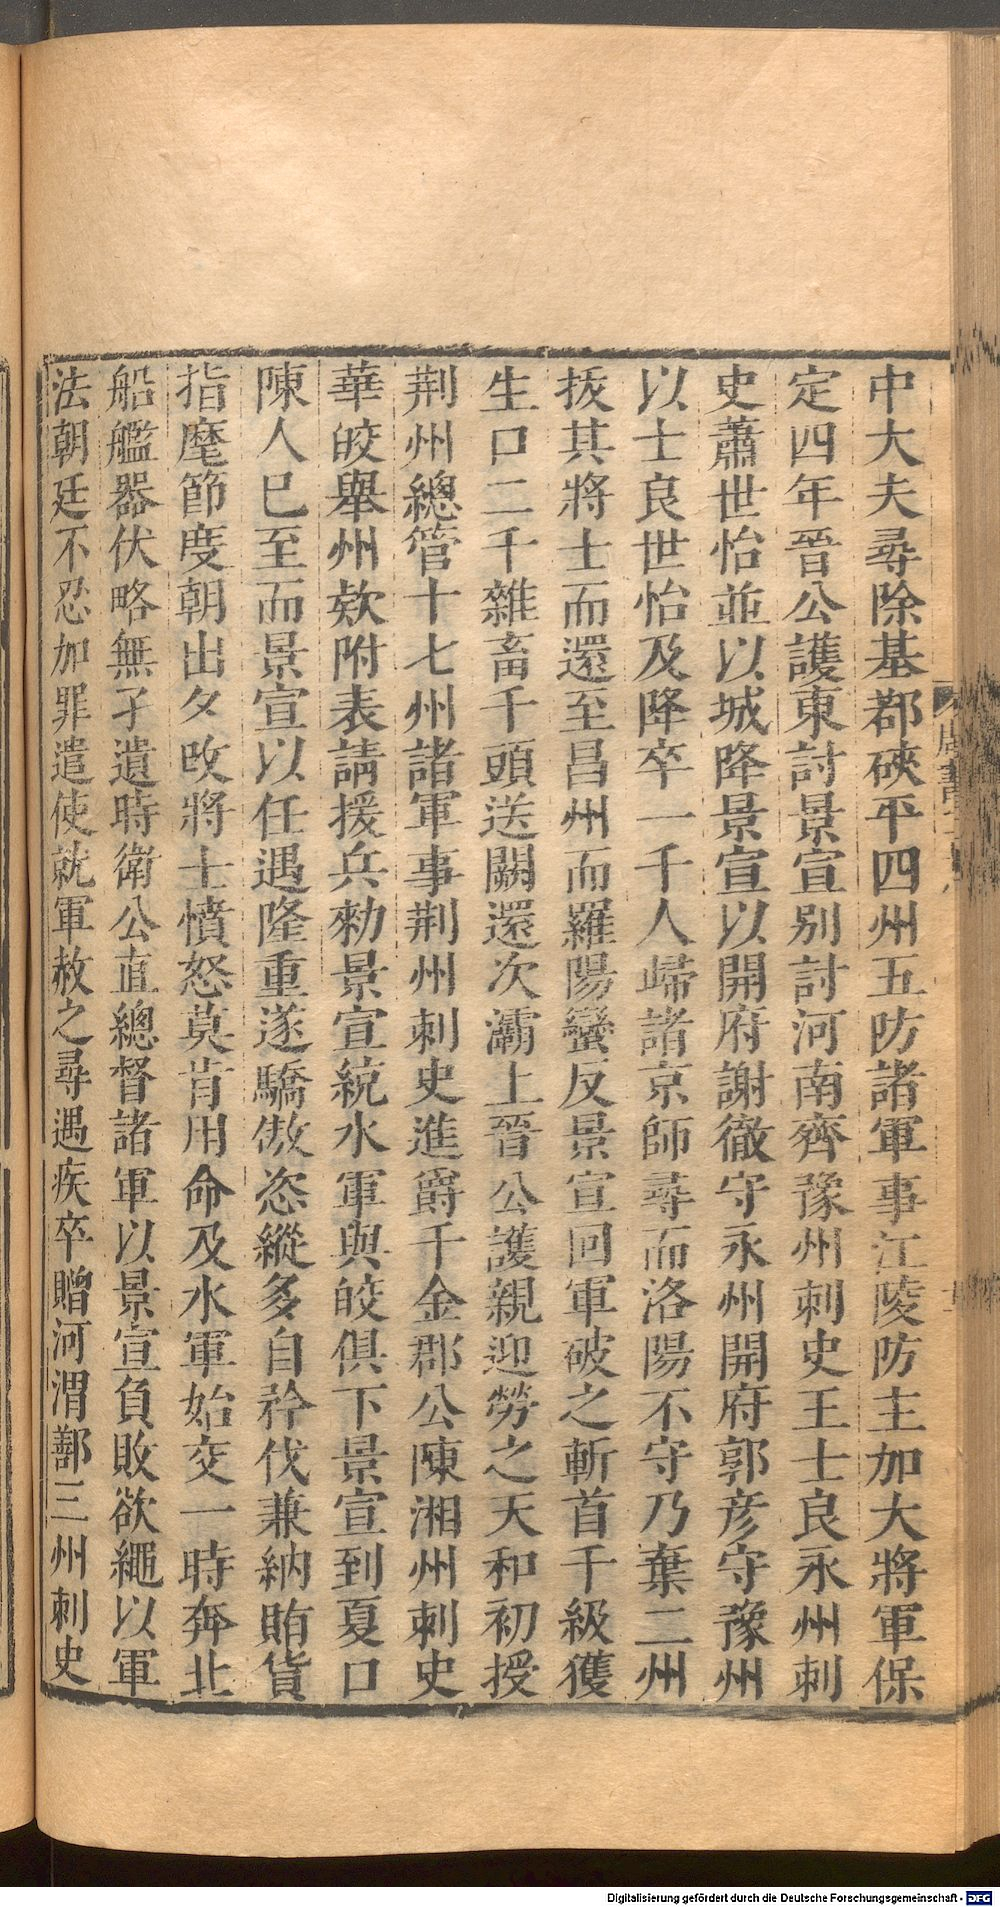 中大夫尋除基鄀硤平四州五防諸軍事江陵防主加大將軍保
定四年晉公護東討景宣别討河南齊豫州刺史王士良永州刺
史蕭世怡並以城降景宣以開府謝徹守永州開府郭彥守豫州
以士良世怡及降卒一千人歸諸京師尋而洛陽不守乃棄二州
拔其將士而還至昌州而羅陽蠻反景宣回軍破之斬首千級獲
生口二千雜畜千頭送闕還次灞上晉公護親迎勞之天和初授
荆州總管十七州諸軍事荆州刺史進爵千金郡公陳湘州刺史
華皎舉州欵附表請援兵勑景宣統水軍與皎俱下景宣到夏口
陳人已至而景宣以任遇隆重遂驕傲恣縱多自矜伐兼納賄貨
指麾節度朝出夕攺將士憤怒莫肯用命及水軍始交一時奔北
船艦器伏略無孑遺時衛公直總督諸軍以景宣負敗欲繩以軍
法朝廷不忍加罪遣使就軍赦之尋遇疾卒贈河渭鄯三州刺史
Digitalisierung gefördert durch die Deutsche Forschungsgemeinschaft - DFG